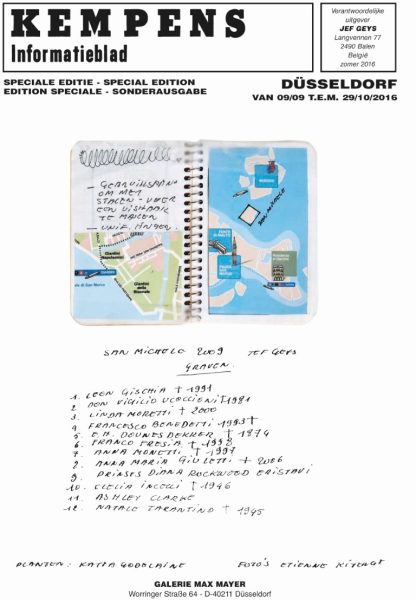 KEMPENS
Informatieblad
Verantwoordelijke
uitgever
JEF GEYS
Langvennen 77
2490 Balen
België
zomer 2016
SPECIALE EDITIE - SPECIAL EDITION
EDITION SPECIALE - SONDERAUSGABE
DÜSSELDORF
VAN 09/09 T.E.M. 29/10/2016
OM MET
STALEN - VOER
TE MAKEN
Giardini
Napoleonici
Giardini
della
Biennale
SAN MICHELE 2009 JEF GEYS
GRAVEN.
1. LEON GISCHIA † 1991
2 DON VIGILIO UCCIONI † 1981
3. LINDA MORETTI † 2000
4 FRANCESCO BENEDETTI 1993 †
5. E.H. DOUNESDEKKER † 1874
6. FRANCO FRESIA † 1998
7. ANNA MONETTI † 1997
8. ANNA MARIA GIULETTI † 2006
9. PRINSES DIANA ROCKWOOD ERISTAVI
10. CLELIA INCELLI † 1946
11. ASHLEY CLARKE
12. NATALE TARANTINO † 1945
PLANTEN: KATIA GODELAINE FOTO'S ETIENNE
GALERIE MAX MAYER
Worringer Straße 64 - D-40211 Düsseldorf